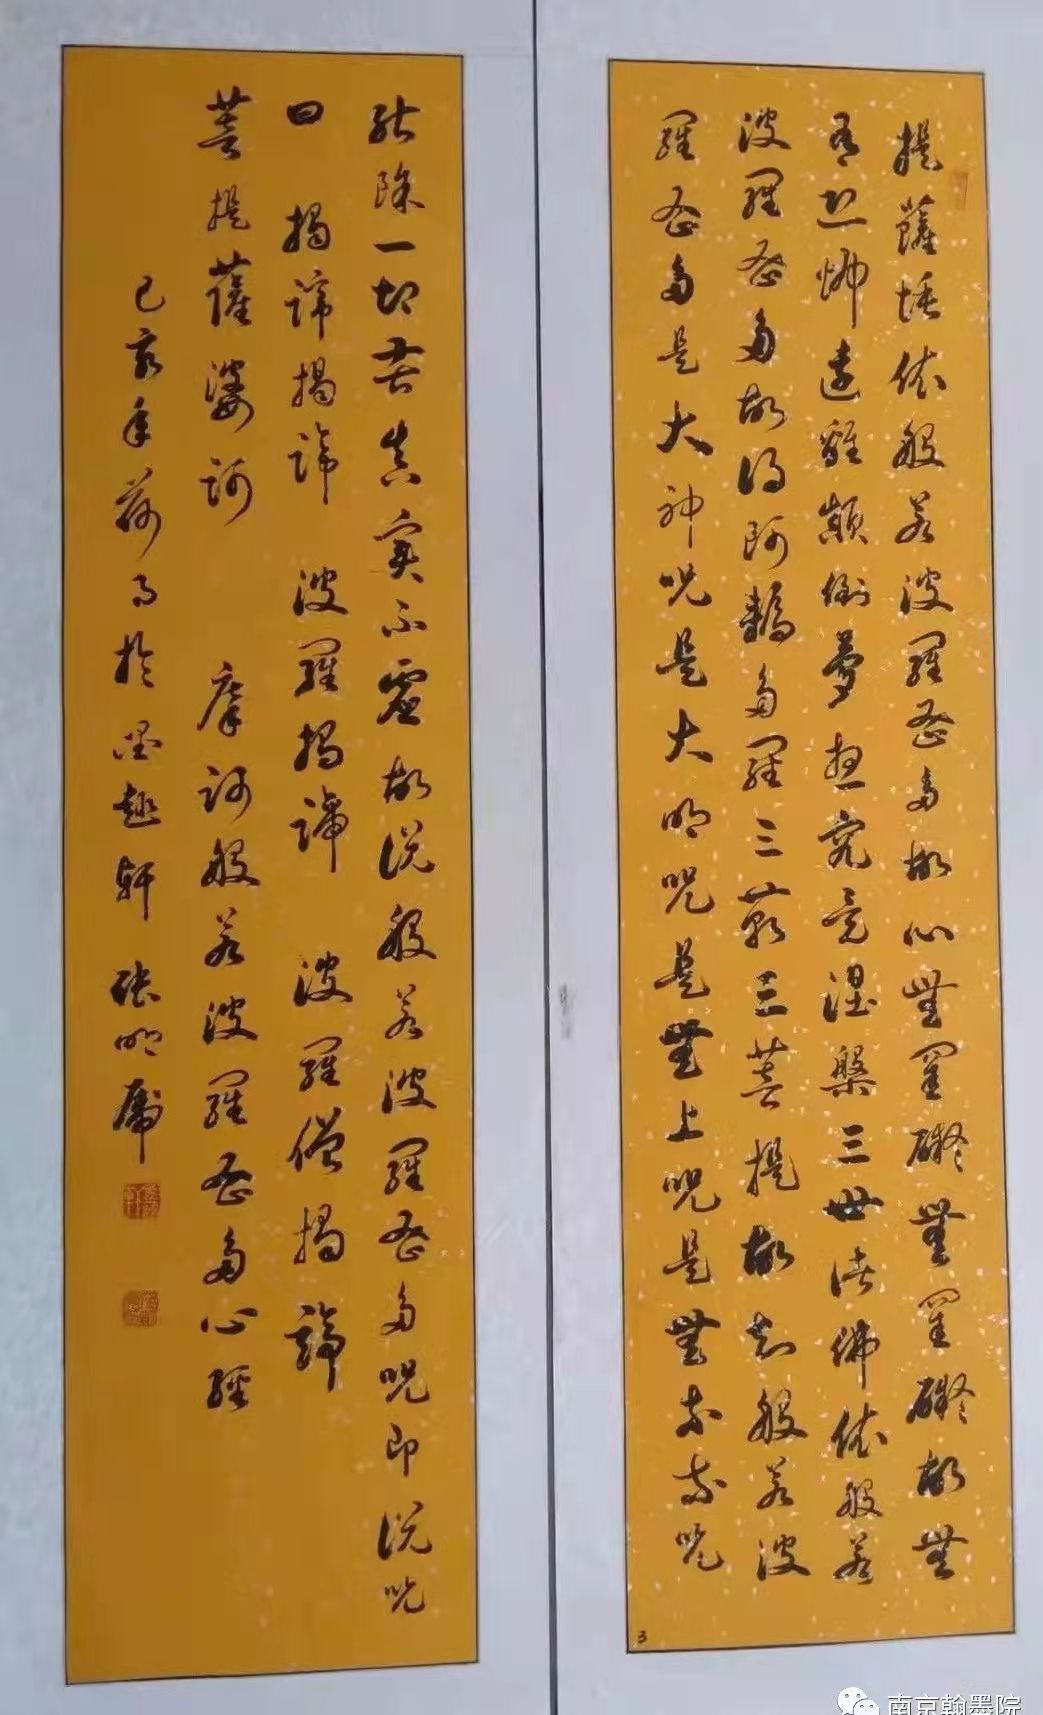 提薩埵依般若波羅蜜多故心無罣礙無罣礙故無
有恐怖遠離顛倒夢想究竟涅槃三世諸佛依般若
波羅蜜多故得阿耨多羅三藐三菩提故知般若波
羅蜜多是大神呪是大明呪是無上呪是無等等呪
3
能除一切苦真實不虛故說般若波羅蜜多呪即說呪
曰 揭諦揭諦 波羅揭諦 波羅僧揭諦
菩提薩婆訶 摩訶般若波羅蜜多心經
己亥年荷月於墨趣軒 張明虎
南京翰墨院